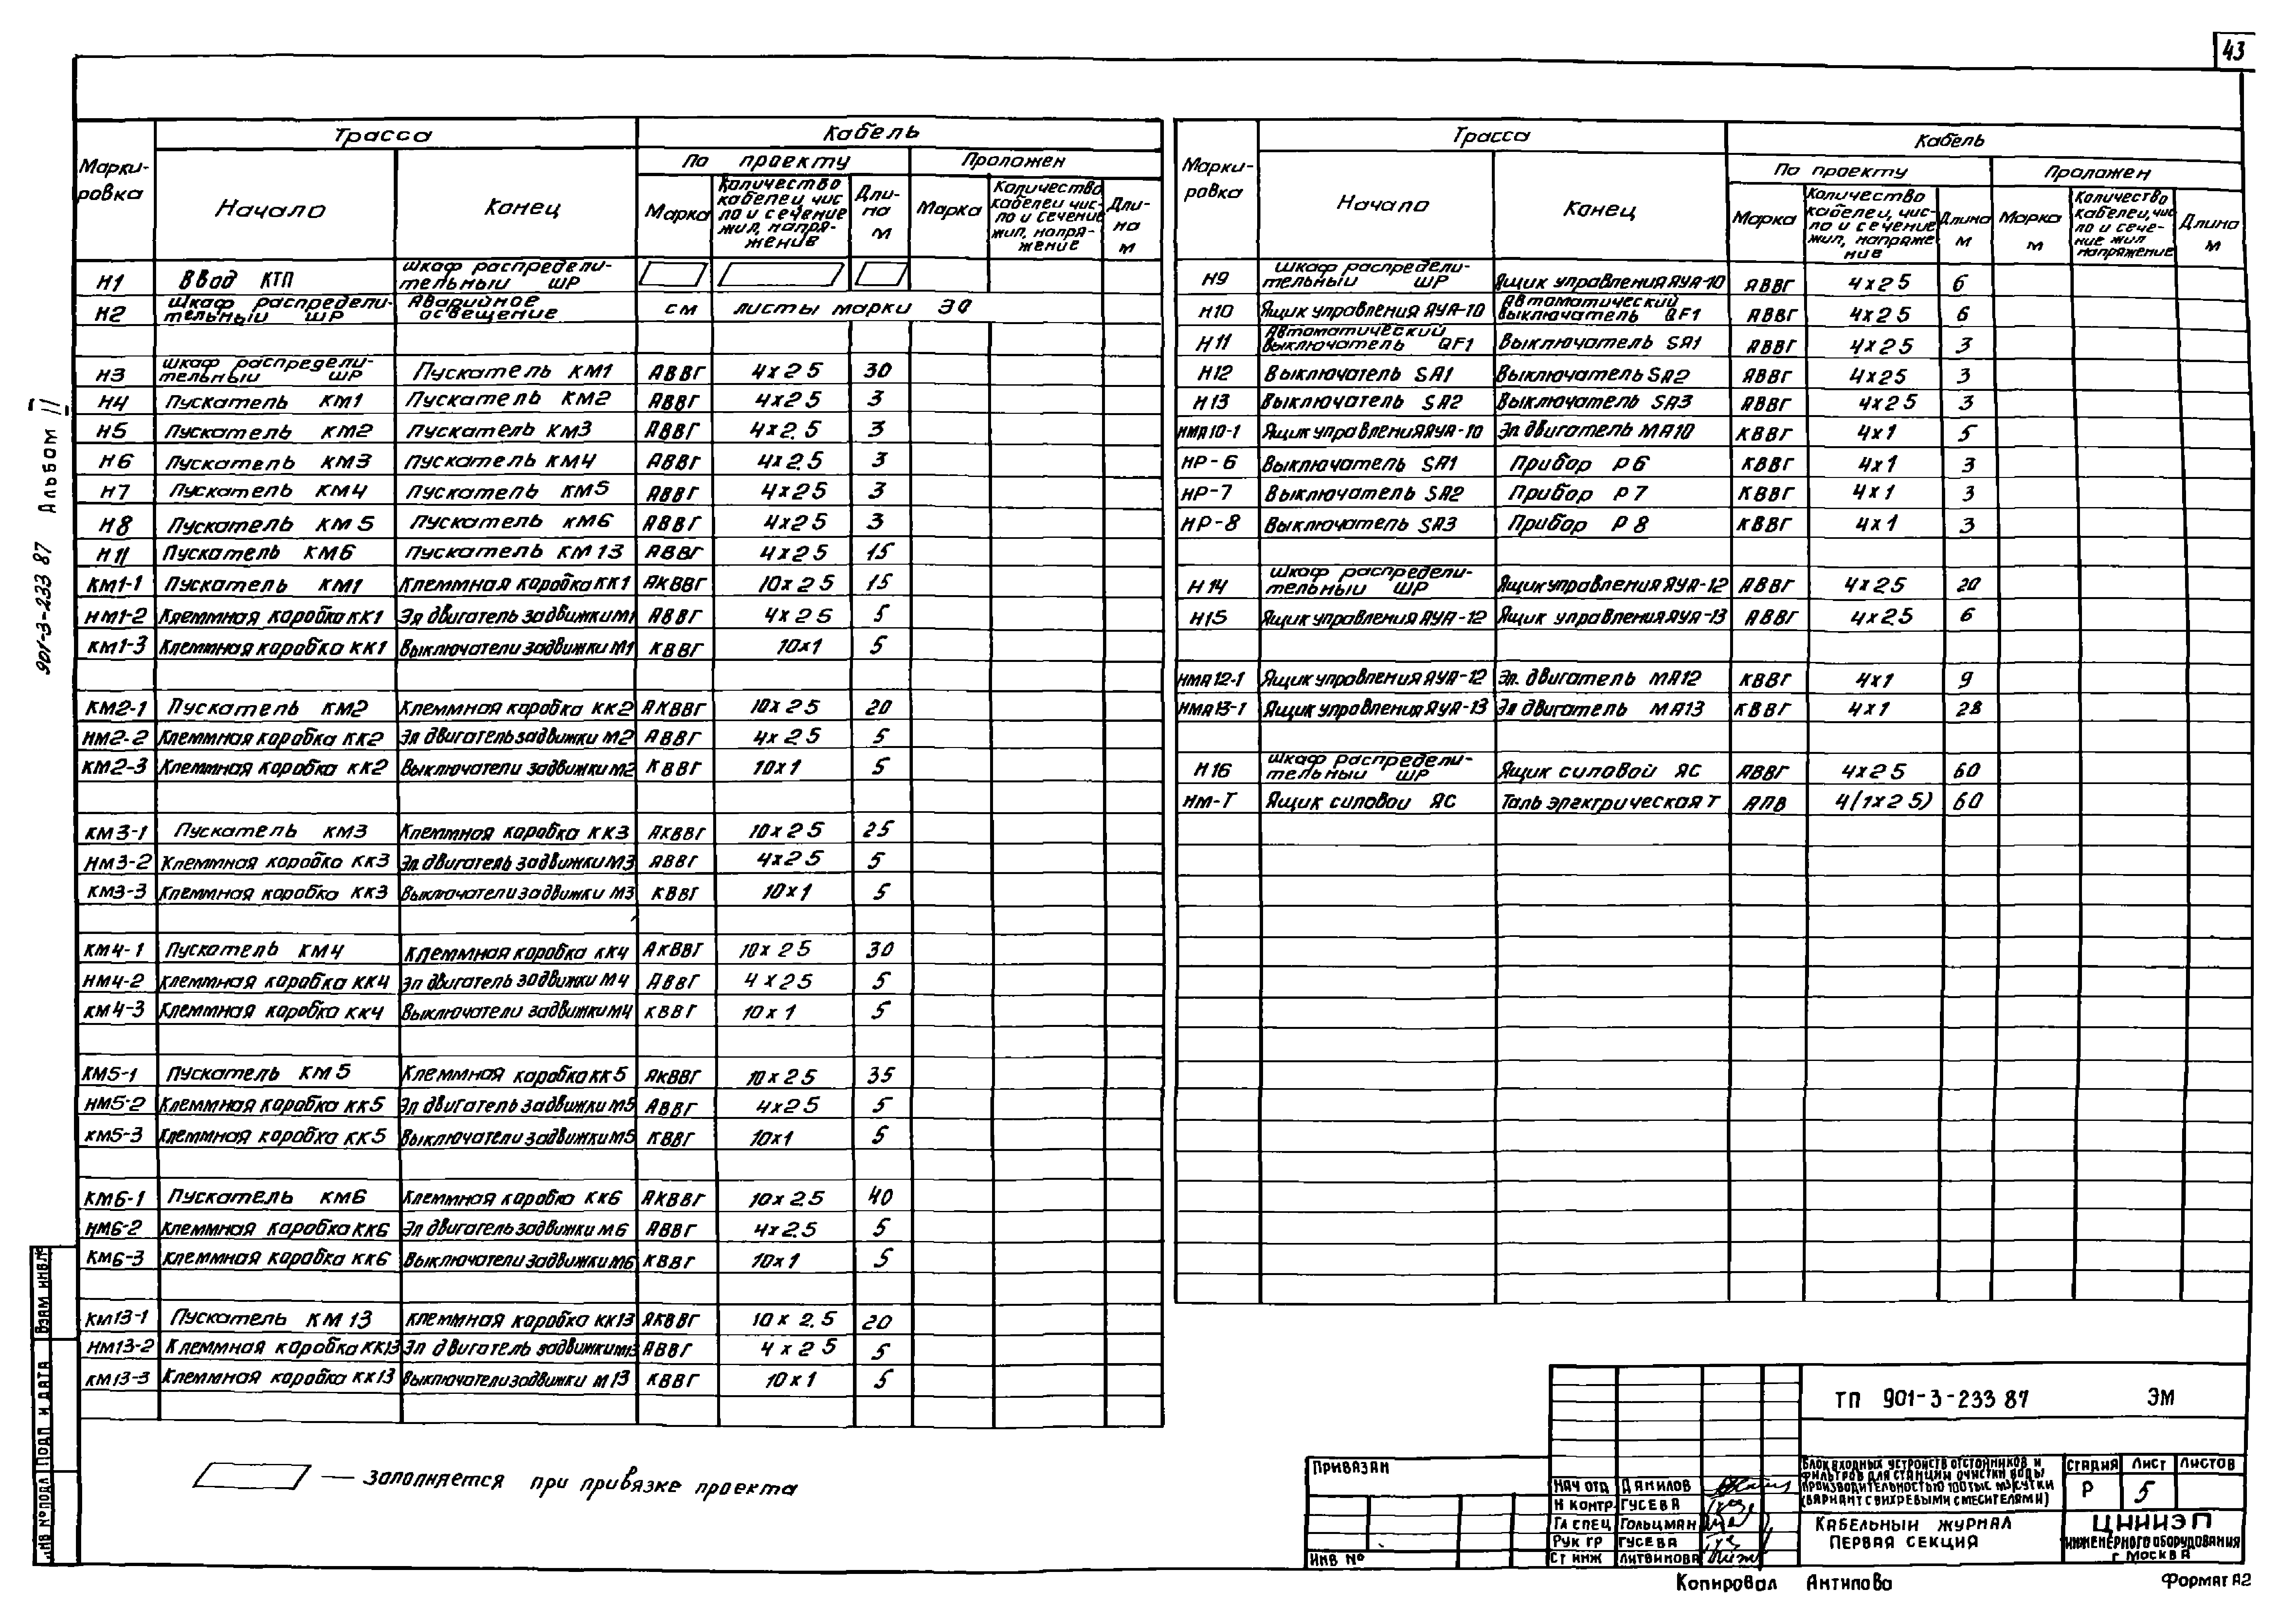 43
Марки-
ровка
Трасса
Кабель
Начало
Конец
По проекту
Проложен
Марка
Количество
кабелец, чис
ло и сечение
жил, напря-
жение
Дли-
на
м
Марка
Количество
кабелец чис-
ло и сечение
жил, напря-
жение
Дли-
на
м
Н1 Ввод КТП шкаф распредели-
тельный ШР
Н2 шкаф распредели-
тельный ШР Аварийное
освещение см листы марки ЭО
Н3 шкаф распредели-
тельный ШР Пускатель КМ1 АВВГ 4х2 5 30
Н4 Пускатель КМ1 Пускатель КМ2 АВВГ 4х2 5 3
Н5 Пускатель КМ2 Пускатель КМ3 АВВГ 4х2.5 3
Н6 Пускатель КМ3 Пускатель КМ4 АВВГ 4х2.5 3
Н7 Пускатель КМ4 Пускатель КМ5 АВВГ 4х2 5 3
Н8 Пускатель КМ5 Пускатель КМ6 АВВГ 4х2 5 3
Н11 Пускатель КМ6 Пускатель КМ13 АВВГ 4х2 5 15
КМ1-1 Пускатель КМ1 Клеммная коробка КК1 АКВВГ 10х2 5 15
НМ1-2 Клеммная коробка КК1 Эл двигатель задвижки М1 АВВГ 4х2 5 5
КМ1-3 Клеммная коробка КК1 Выключатели задвижки М1 КВВГ 10х1 5
КМ2-1 Пускатель КМ2 Клеммная коробка КК2 АКВВГ 10х2 5 20
НМ2-2 Клеммная коробка КК2 Эл двигатель задвижки М2 АВВГ 4х2 5 5
КМ2-3 Клеммная коробка КК2 Выключатели задвижки М2 КВВГ 10х1 5
КМ3-1 Пускатель КМ3 Клеммная коробка КК3 АКВВГ 10х2 5 25
НМ3-2 Клеммная коробка КК3 Эл двигатель задвижки М3 АВВГ 4х2 5 5
КМ3-3 Клеммная коробка КК3 Выключатели задвижки М3 КВВГ 10х1 5
КМ4-1 Пускатель КМ4 Клеммная коробка КК4 АКВВГ 10х2 5 30
НМ4-2 Клеммная коробка КК4 Эл двигатель задвижки М4 АВВГ 4х2 5 5
КМ4-3 Клеммная коробка КК4 Выключатели задвижки М4 КВВГ 10х1 5
КМ5-1 Пускатель КМ5 Клеммная коробка КК5 АКВВГ 10х2 5 35
НМ5-2 Клеммная коробка КК5 Эл двигатель задвижки М5 АВВГ 4х2 5 5
КМ5-3 Клеммная коробка КК5 Выключатели задвижки М5 КВВГ 10х1 5
КМ6-1 Пускатель КМ6 Клеммная коробка КК6 АКВВГ 10х2.5 40
НМ6-2 Клеммная коробка КК6 Эл двигатель задвижки М6 АВВГ 4х2.5 5
КМ6-3 Клеммная коробка КК6 Выключатели задвижки М6 КВВГ 10х1 5
КМ13-1 Пускатель КМ13 Клеммная коробка КК13 АКВВГ 10х2.5 20
НМ13-2 Клеммная коробка КК13 Эл двигатель задвижки М13 АВВГ 4х2 5 5
КМ13-3 Клеммная коробка КК13 Выключатели задвижки М13 КВВГ 10х1 5
— заполняется при привязке проекта
Марки-
ровка
Трасса
Кабель
Начало
Конец
По проекту
Проложен
Марка
Количество
кабелец, чис-
ло и сечение
жил, напряже
ние
Длина
м
Марка
м
Количество
кабелец, чис
ло и сече-
ние жил
напряжение
Длина
м
Н9 шкаф распредели-
тельный ШР Ящик управления ЯУА-10 АВВГ 4х2 5 6
Н10 Ящик управления ЯУА-10 Автоматический
выключатель QF1 АВВГ 4х2 5 6
Н11 Автоматический
выключатель QF1 Выключатель SA1 АВВГ 4х2 5 3
Н12 Выключатель SA1 Выключатель SA2 АВВГ 4х2 5 3
Н13 Выключатель SA2 Выключатель SA3 АВВГ 4х2 5 3
НМА10-1 Ящик управления ЯУА-10 Эл двигатель МА10 КВВГ 4х1 5
НР-6 Выключатель SA1 Прибор Р6 КВВГ 4х1 3
НР-7 Выключатель SA2 Прибор Р7 КВВГ 4х1 3
НР-8 Выключатель SA3 Прибор Р8 КВВГ 4х1 3
Н14 шкаф распредели-
тельный ШР Ящик управления ЯУА-12 АВВГ 4х2 5 20
Н15 Ящик управления ЯУА-12 Ящик управления ЯУА-13 АВВГ 4х2.5 6
НМА12-1 Ящик управления ЯУА-12 Эл. двигатель МА12 КВВГ 4х1 9
НМА13-1 Ящик управления ЯУА-13 Эл двигатель МА13 КВВГ 4х1 28
Н16 шкаф распредели-
тельный ШР Ящик силовой ЯС АВВГ 4х2 5 60
НМ-Т Ящик силовой ЯС Таль электрическая Т АПВ 4(1х2 5) 60
901-3-233 87 Альбом II
Взам инв.№
Подп и дата
Инв № подл
Привязан
Инв №
Нач отд Данилов
Н контр. Гусева
Гл спец Гольцман
Рук гр Гусева
Ст инж Литвинова
ТП 901-3-233 87 ЭМ
Блок входных устройств отстойников и
фильтров для станции очистки воды
производительностью 100 тыс м3/сутки
(вариант с вихревыми смесителями)
Стадия Лист Листов
Р 5
Кабельный журнал
Первая секция
ЦНИИЭП
инженерного оборудования
г Москва
Копировал Антипова
Формат А2